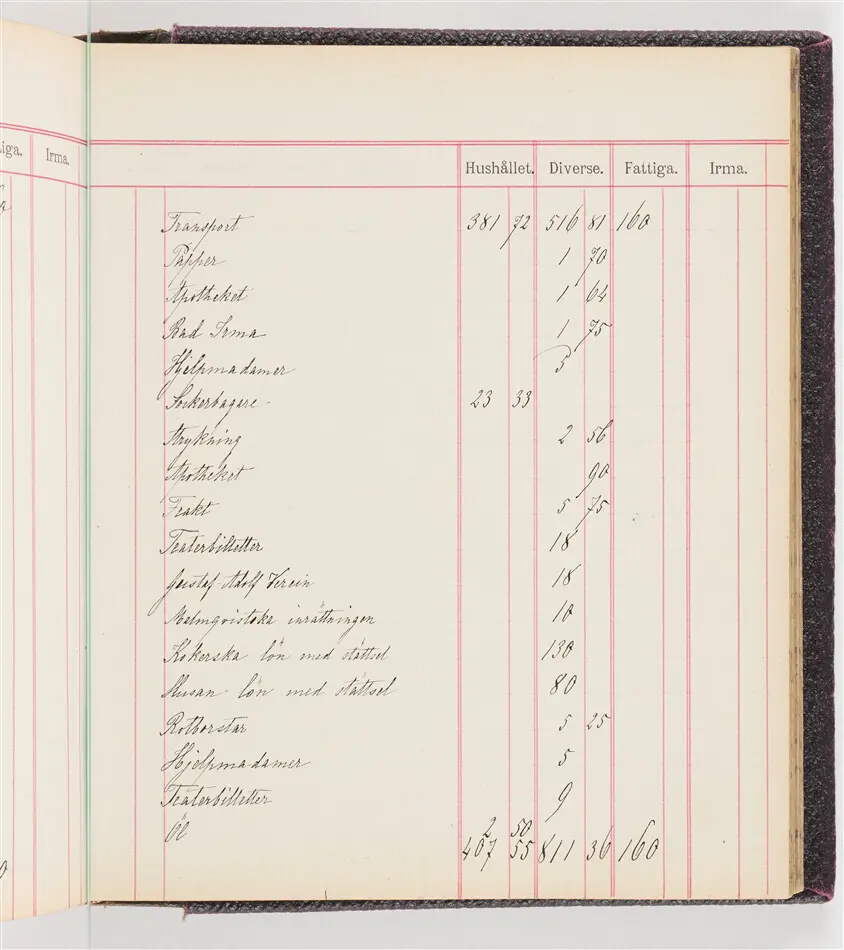 tiga. Irma.
Hushållet. Diverse. Fattiga. Irma.
Transport 381 72 516 81 160
Papper 1 70
Apotheket 1 64
Bad Irma 1 75
Hjelpmadamer 5
Sockerbagare 23 33
Strykning 2 56
Apotheket 90
Frakt 5 75
Teaterbilletter 18
Gustaf Adolf Verein 18
Malmqvistska inrättningen 10
Kokerska lön med städsel 130
Husan lön med städsel 80
Rotborstar 5 25
Hjelpmadamer 5
Teaterbilletter 9
Öl 2 50
407 55 811 36 160